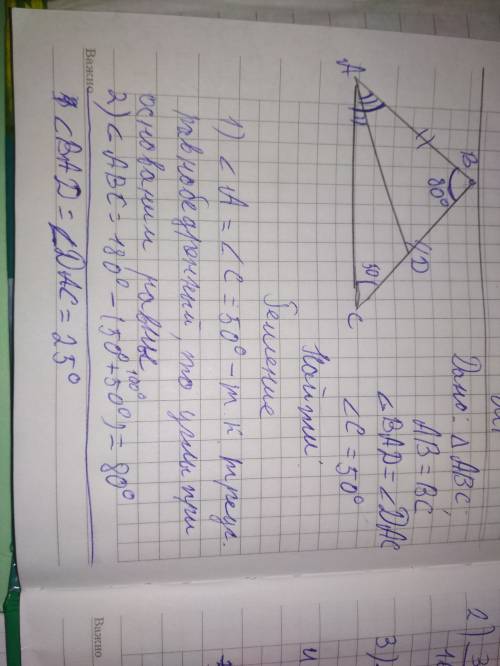 Дано: △ ABC;
AB = BC
∠BAD = ∠DAC
∠C = 50°
Найти:
Решение
A
B
80°
D
50
C
1) ∠A = ∠C = 50° - т.к. треуг.
равнобедренный, то углы при
основании равны
100°
2) ∠ABC = 180° - (50°+50°) = 80°
∠BAD = ∠DAC = 25°
Важно
Важно
2)
3)